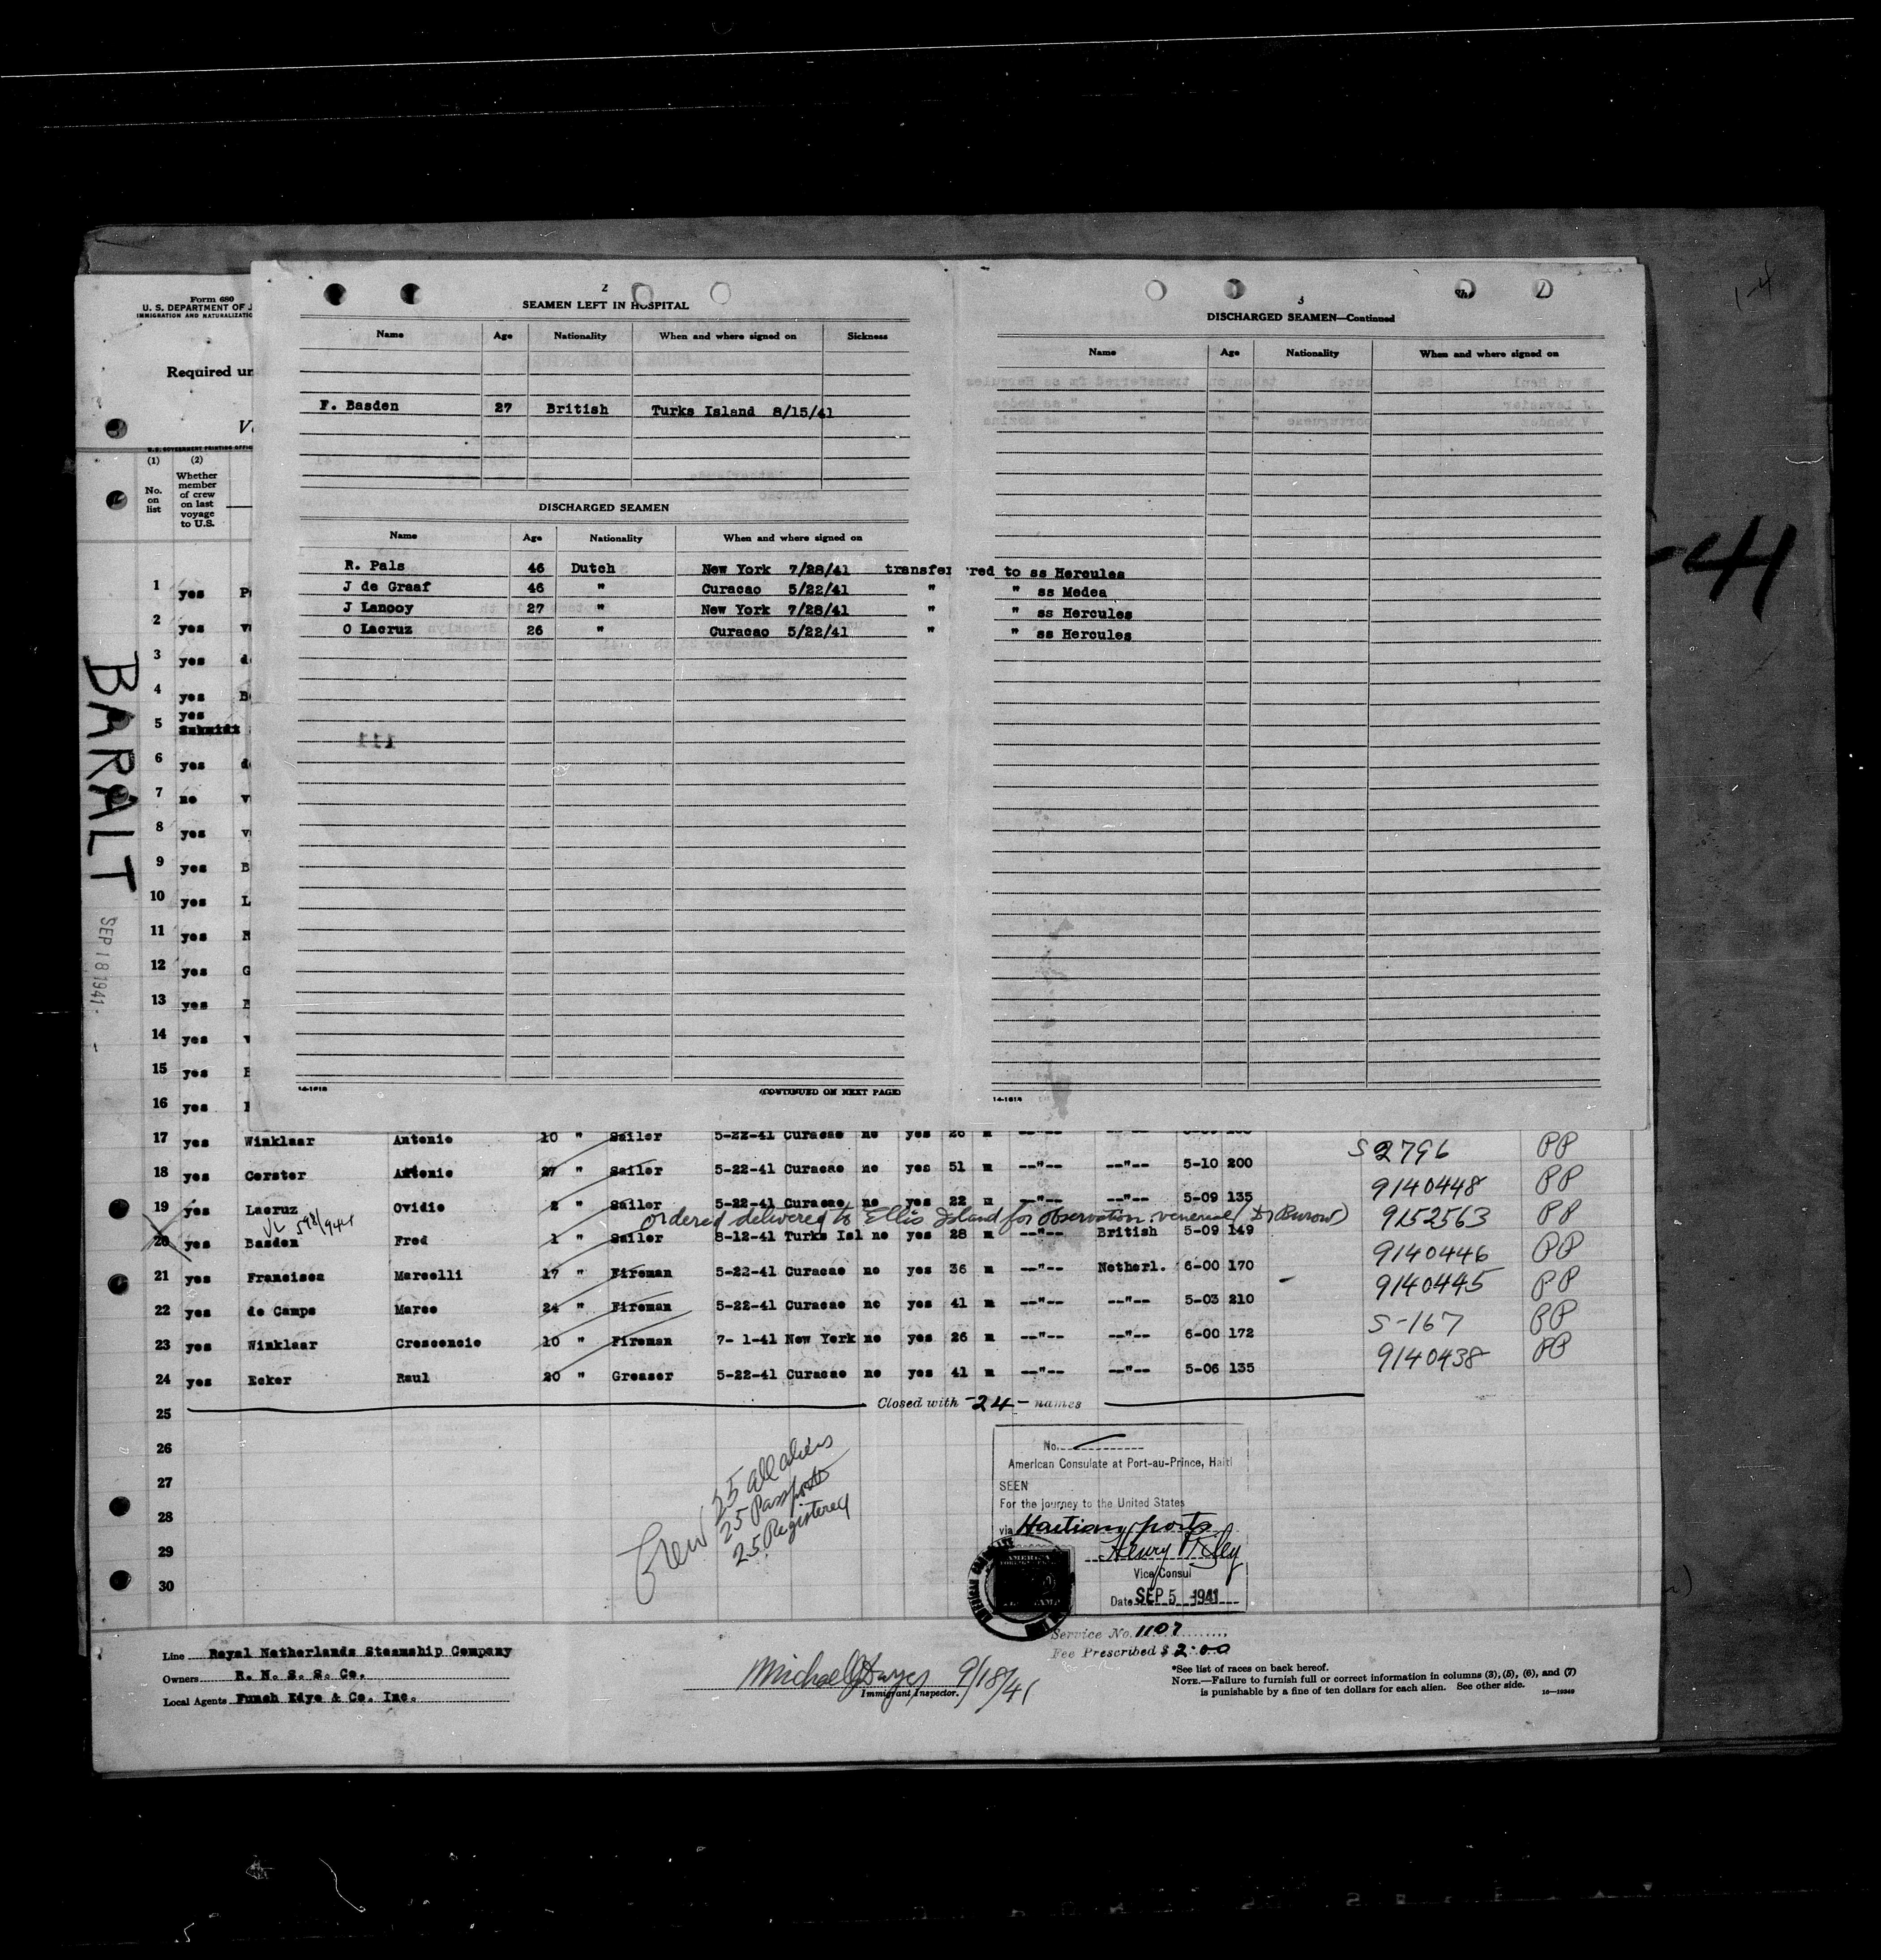 Form 680
U. S. DEPARTMENT OF J
IMMIGRATION AND NATURALIZATIO
Required un
V
U. S. GOVERNMENT PRINTING OFFIC
(1) (2)
No. on list
Whether member of crew on last voyage to U.S.
BARALT
SEP 18 1941
2
SEAMEN LEFT IN HOSPITAL
Name Age Nationality When and where signed on Sickness
F. Basden 27 British Turks Island 8/15/41
DISCHARGED SEAMEN
Name Age Nationality When and where signed on
R. Pals 46 Dutch New York 7/28/41 transferred to ss Hercules
J de Graaf 46 " Curacao 5/22/41 " " ss Medea
J Lanooy 27 " New York 7/28/41 " " ss Hercules
O Lacruz 26 " Curacao 5/22/41 " " ss Hercules
111
14-1618
(CONTINUED ON NEXT PAGE)
3
DISCHARGED SEAMEN—Continued
Name Age Nationality When and where signed on
14-1618
1-4
-41
1 yes P
2 yes v
3 yes d
4 yes B
5 yes
Schmidt
6 yes d
7 no v
8 yes v
9 yes B
10 yes L
11 yes
12 yes G
13 yes
14 yes v
15 yes
16 yes
17 yes Winklaar Antonie 10 " Sailor 5-22-41 Curacao no yes 26 m --"-- --"--
S 2796 PP
18 yes Corster Antonie 27 " Sailor 5-22-41 Curacao no yes 51 m --"-- --"-- 5-10 200
9140448 PP
19 yes Lacruz Ovidio 2 " Sailor 5-22-41 Curacao no yes 22 m --"-- --"-- 5-09 135
ordered delivered to Ellis Island for observation venereal (Dr Burow)
9152563 PP
20 yes Basden Fred 1 " Sailor 8-12-41 Turks Isl no yes 28 m --"-- British 5-09 149
9140446 PP
21 yes Francisca Marcelli 17 " Fireman 5-22-41 Curacao no yes 36 m --"-- Netherl. 6-00 170
9140445 PP
22 yes de Camps Marco 24 " Fireman 5-22-41 Curacao no yes 41 m --"-- --"-- 5-03 210
S-167 PP
23 yes Winklaar Crescencio 10 " Fireman 7- 1-41 New York no yes 26 m --"-- --"-- 6-00 172
9140438 PP
24 yes Ecker Raul 20 " Greaser 5-22-41 Curacao no yes 41 m --"-- --"-- 5-06 135
Closed with -24- names
25
26
27
28
29
30
Crew 25 all aliens
25 Passports
25 Registered
No.
American Consulate at Port-au-Prince, Haiti
SEEN
For the journey to the United States
via Haitian ports
Henry Riley
Vice Consul
Date SEP 5 1941
Service No. 1107
Fee Prescribed $ 2.00
Line Royal Netherlands Steamship Company
Owners R. N. S. S. Co.
Local Agents Funch Edye & Co. Inc.
Michael J Hayes 9/18/41
Immigrant Inspector.
*See list of races on back hereof.
NOTE.—Failure to furnish full or correct information in columns (3), (5), (6), and (7)
is punishable by a fine of ten dollars for each alien. See other side.